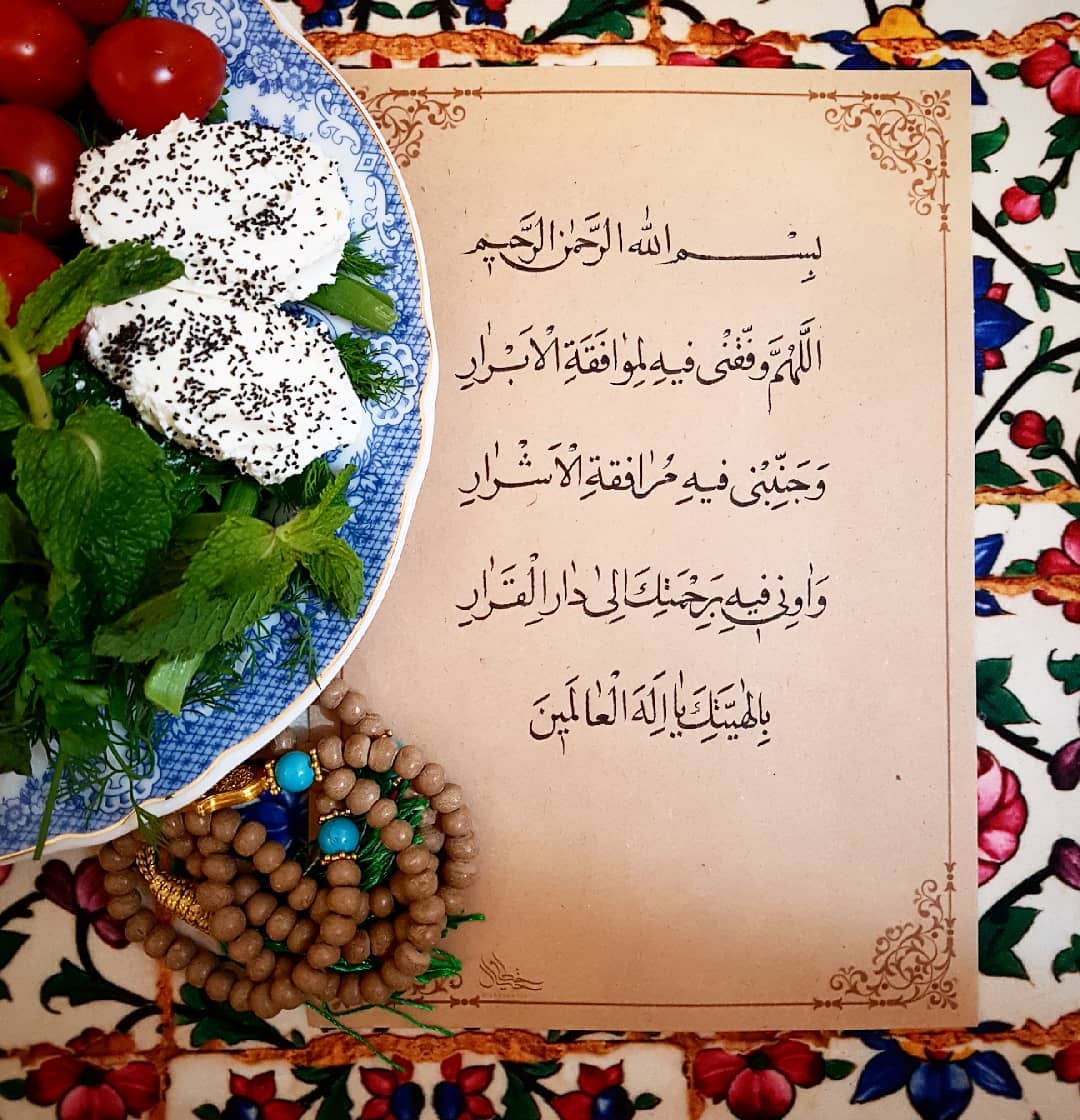 بِسْمِ اللهِ الرَّحْمٰنِ الرَّحيمِ
اَللّهُمَّ وَفِّقْنى فيهِ لِمُوافَقَةِ الْاَبْرارِ
وَجَنِّبْنى فيهِ مُرافَقَةِ الْاَشْرارِ
وَاونى فيهِ بِرَحْمَتِكَ اِلى دارِ الْقَرارِ
بِاِلهِيَّتِكَ يا اِلَهَ الْعالَمينَ